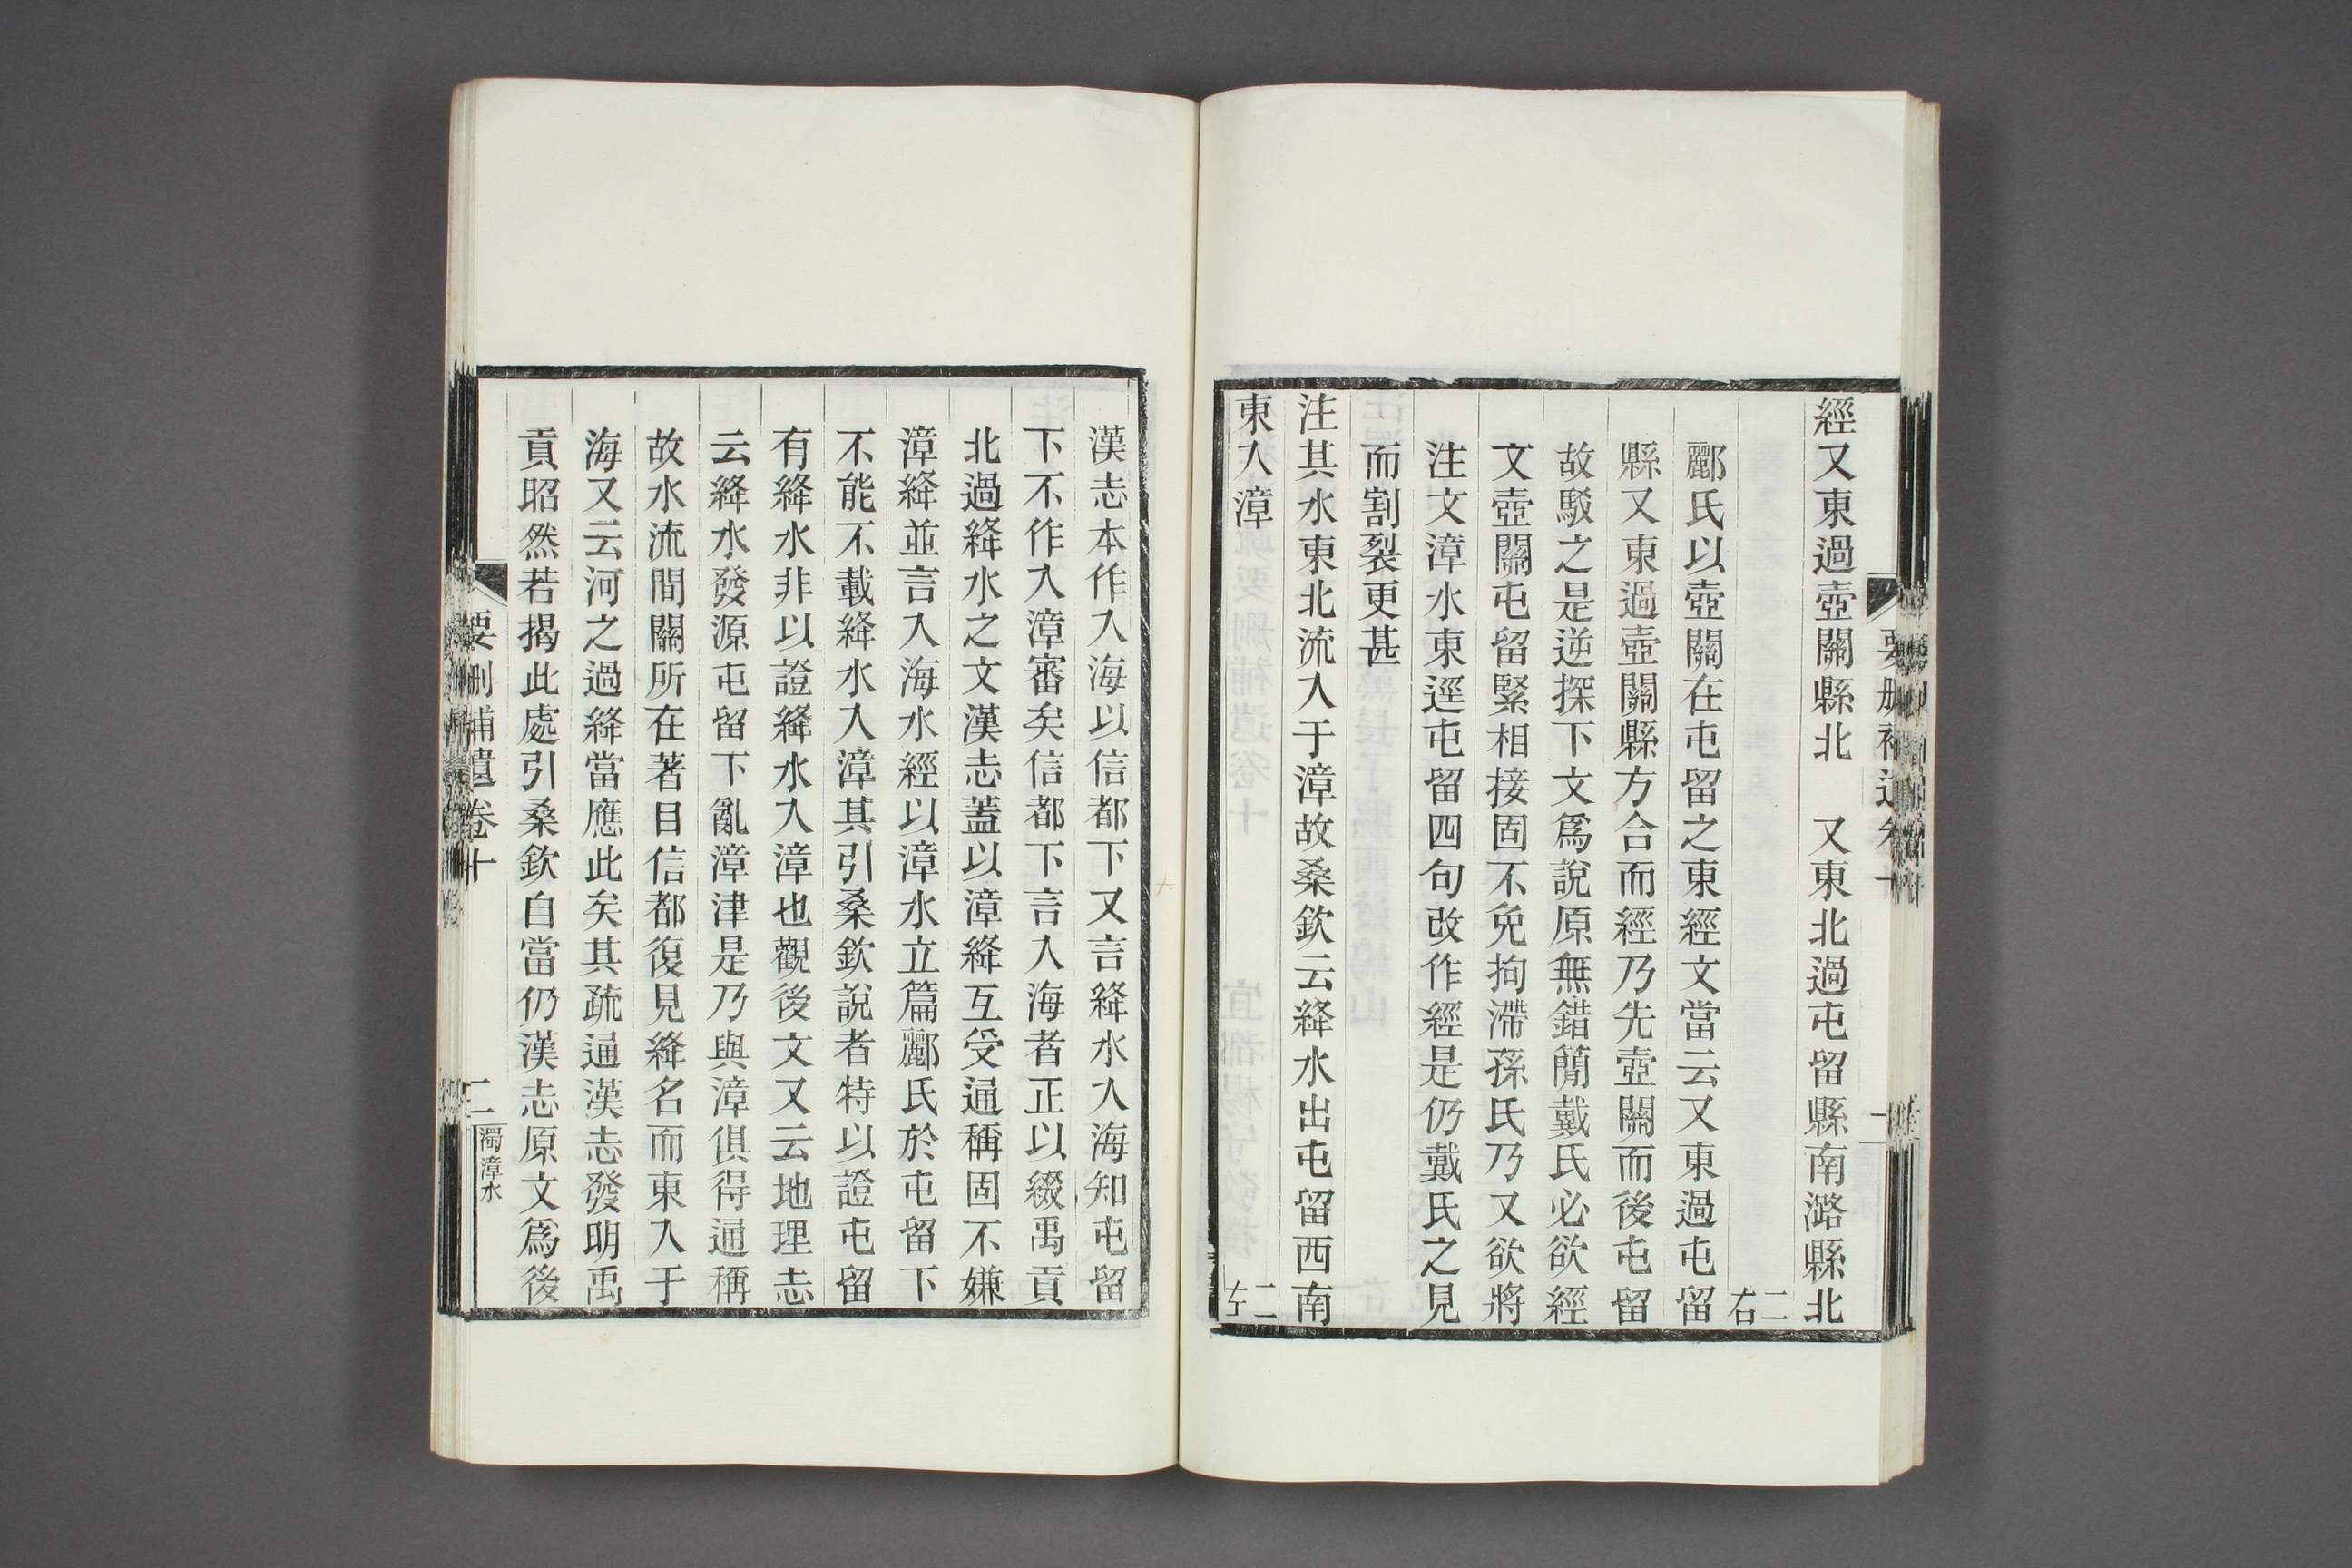 經又東過壺關縣北　又東北過屯留縣南潞縣北
二右
酈氏以壺關在屯留之東經文當云又東過屯留
縣又東過壺關縣方合而經乃先壺關而後屯留
故駁之是逆探下文爲說原無錯簡戴氏必欲經
文壺關屯留緊相接固不免拘滯孫氏乃又欲將
注文漳水東逕屯留四句改作經是仍戴氏之見
而割裂更甚
注其水東北流入于漳故桑欽云絳水出屯留西南
東入漳　二左
漢志本作入海以信都下又言絳水入海知屯留
下不作入漳審矣信都下言入海者正以綴禹貢
北過絳水之文漢志蓋以漳絳互受通稱固不嫌
漳絳並言入海水經以漳水立篇酈氏於屯留下
不能不載絳水入漳其引桑欽說者特以證屯留
有絳水非以證絳水入漳也觀後文又云地理志
云絳水發源屯留下亂漳津是乃與漳俱得通稱
故水流間關所在著目信都復見絳名而東入于
海又云河之過絳當應此矣其疏通漢志發明禹
貢昭然若揭此處引桑欽自當仍漢志原文爲後
要刪補遺卷十　二　濁漳水